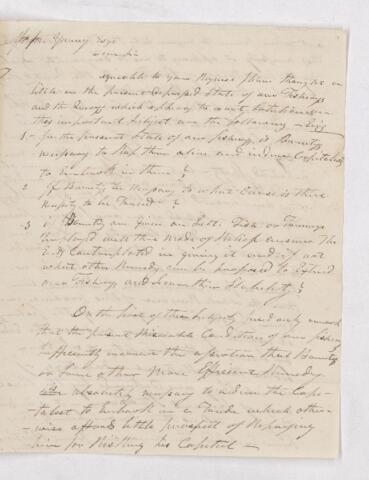 Young Esqr
Dear Sir
agreeable to your Request I have thought a
little on the present depressed State of our Fishings
and the Querys which appear to want Solution on
this important Subject are the following – Viz
1 – In the present State of our fishing is Bounty
necessary to keep them alive and induce Capitalists
to Embark in them ?
2 If Bounty be necessary to what Extent is there
to be ?
3 if Bounty are given on Salt: Fish or Tonnage
Employed will this mode of Relief answer the
End Contemplated in giving it and if not
what other Remedy can be proposed to Extend
our Fishings and ?
On the first of these Subjects I need only remark
that the present Miserable Condition of our fishing
the operation that Bounty
or Some other More Effective Remedy
absolutely necessary to induce the Capi-
talist to Embark in a Trade which other-
wise affords little prospect of Repaying
him for Risking his Capital –